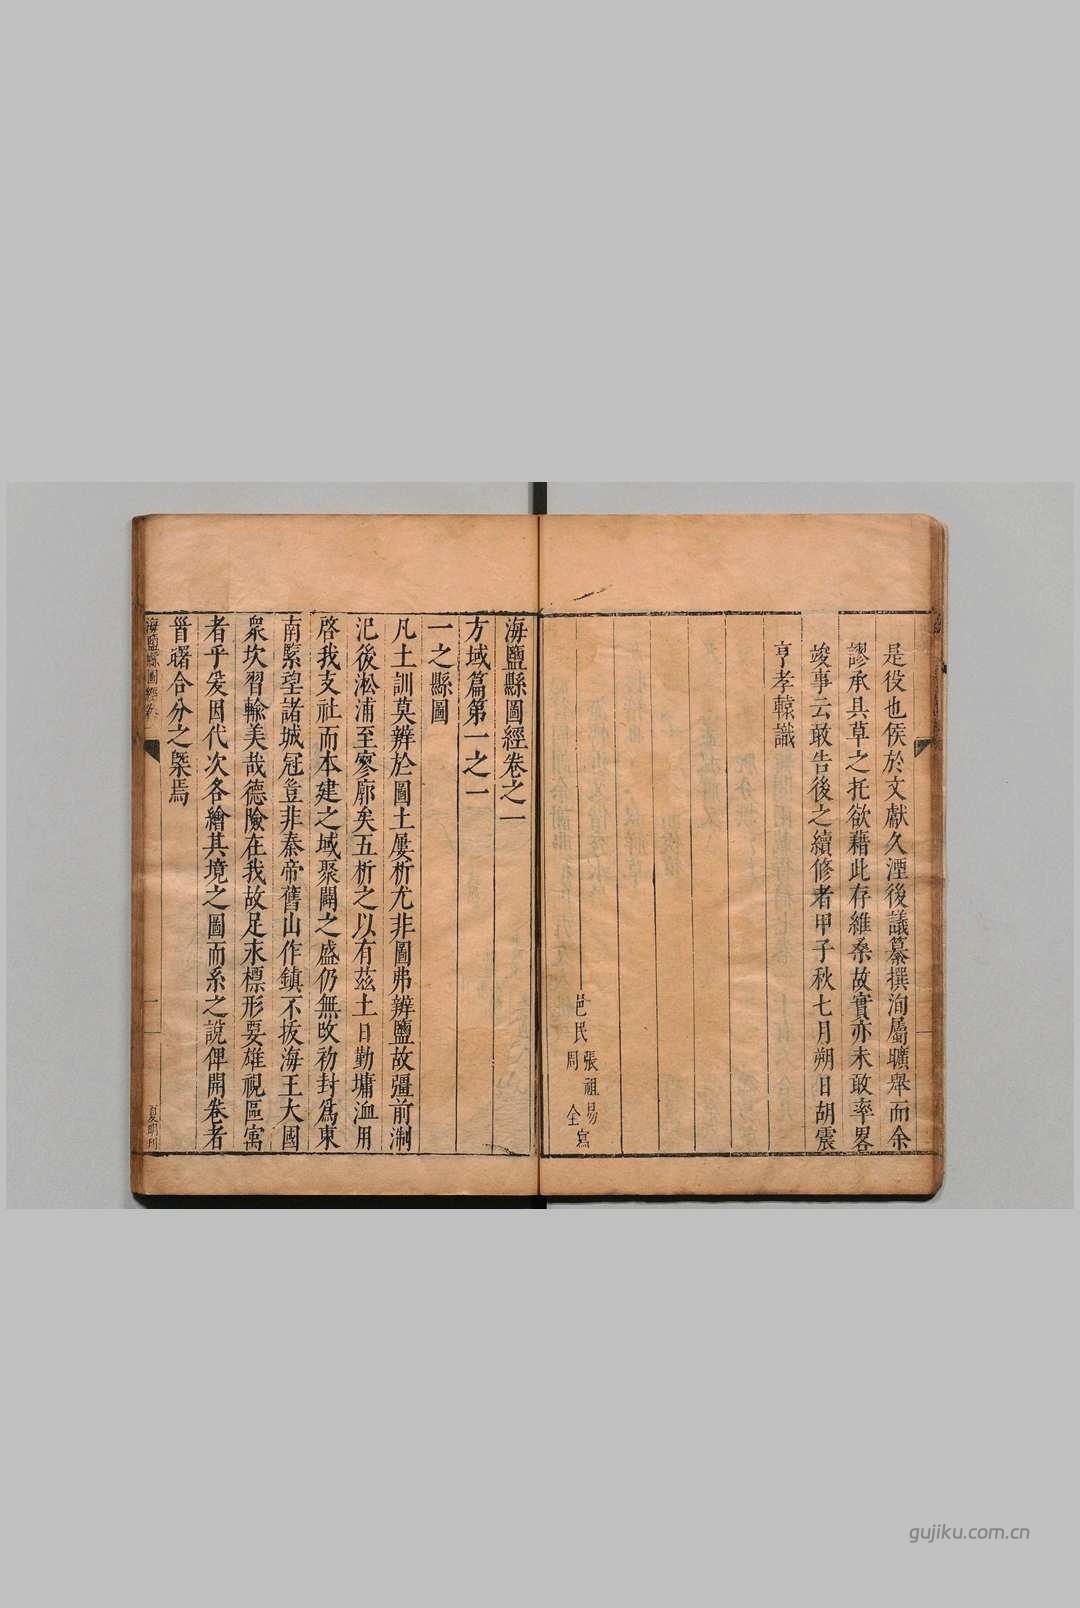 是役也侯於文獻久湮後議纂撰洵屬曠舉而余
謬承具草之托欲藉此存維桑故實亦未敢率畧
竣事云敢告後之續修者甲子秋七月朔日胡震
亨孝轅識
邑民張祖易
周全寫
海鹽縣圖經卷之一
方域篇第一之一
一之縣圖
凡土訓莫辨於圖土屢析尤非圖弗辨鹽故彊前淛
汜後淞浦至寥廓矣五析之以有茲土日勤墉洫用
啓我支社而本建之域聚闢之盛仍無改初封爲東
南緊望諸城冠豈非秦帝舊山作鎮不拔海王大國
衆坎習輸美哉德險在我故足永標形要雄視區㝢
者乎爰因代次各繪其境之圖而系之說俾開卷者
晉曙合分之槩焉
海鹽縣圖經卷一
一
夏明刊
gujiku.com.cn